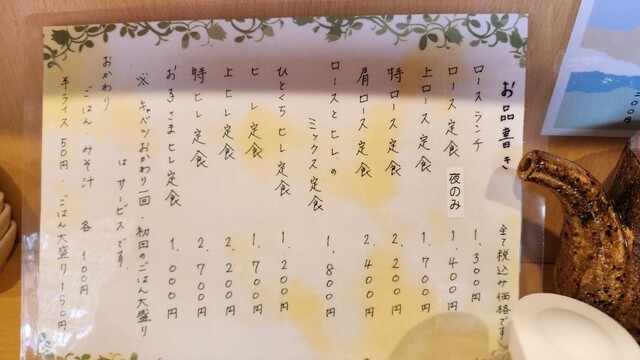 お品書き 全て税込み価格です
ロースランチ 1,300円
ロース定食 夜のみ 1,400円
上ロース定食 1,700円
特ロース定食 2,200円
肩ロース定食 2,400円
ロースとヒレの
ミックス定食 1,800円
ひとくちヒレ定食 1,200円
ヒレ定食 1,700円
上ヒレ定食 2,200円
特ヒレ定食 2,700円
お子さまヒレ定食 1,000円
※キャベツおかわり一回・初回のごはん大盛り
はサービスです。
おかわり
ごはん・みそ汁 各100円
半ライス50円・ごはん大盛り150円
00円